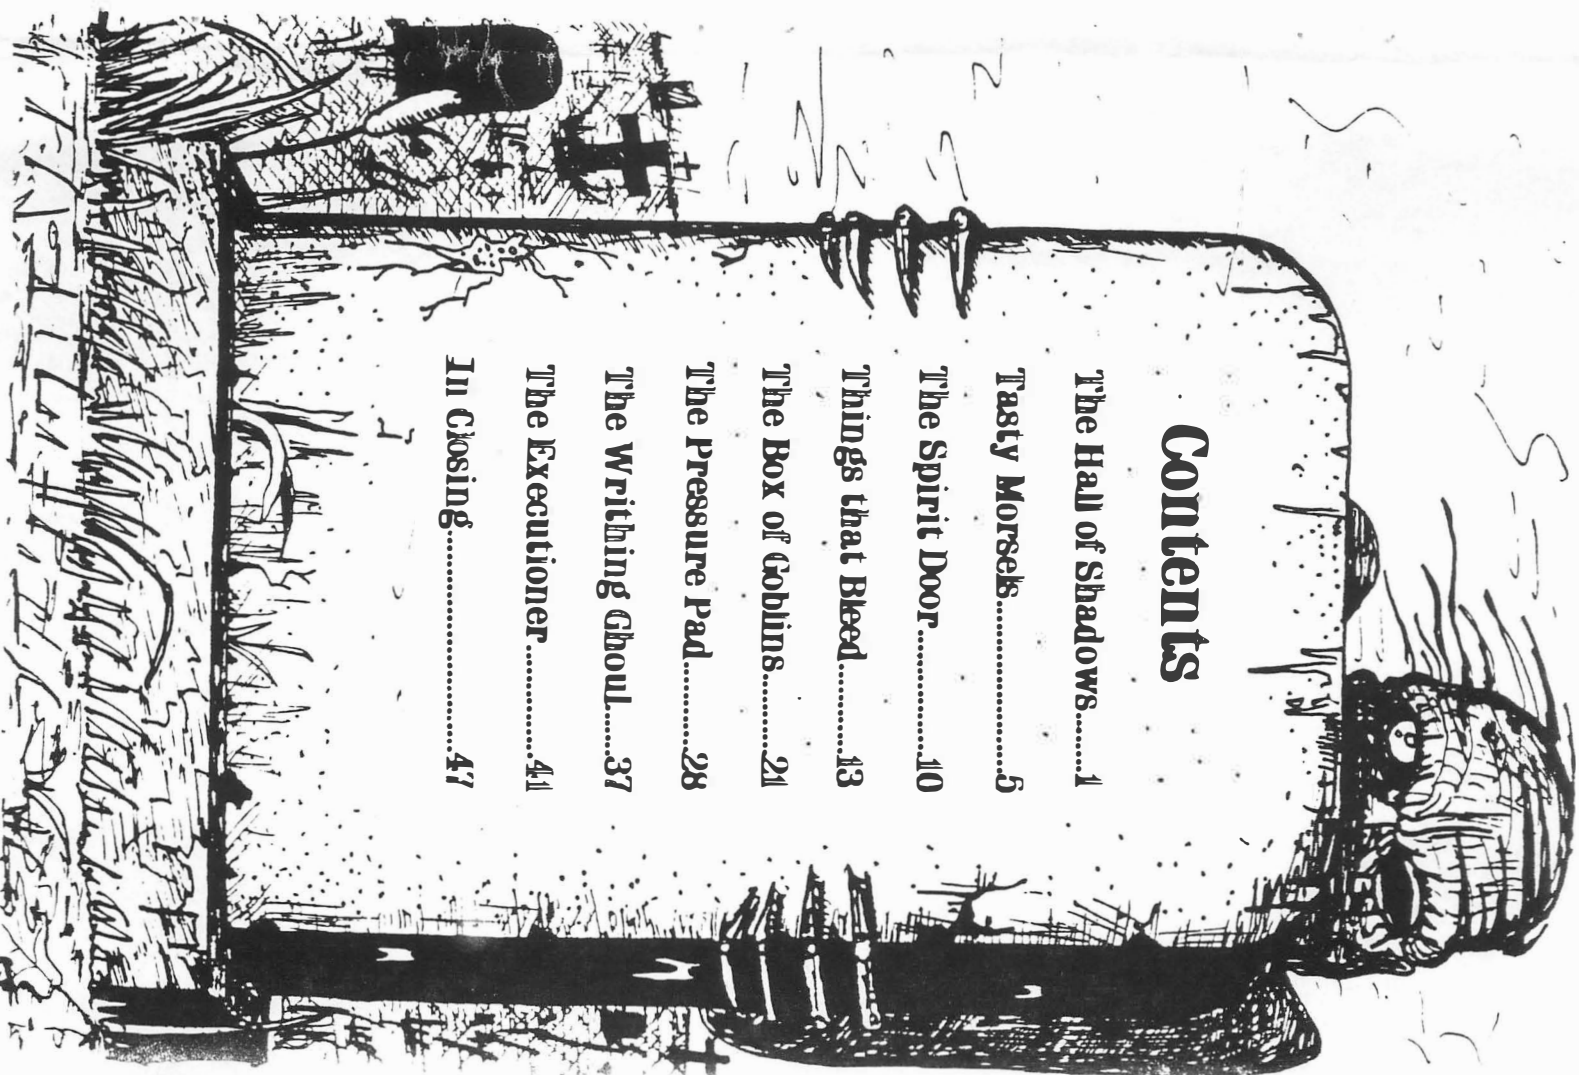 Contents
The Hall of Shadows........1
Tasty Morsels......................5
The Spirit Door................10
Things that Bleed............13
The Box of Goblins...........21
The Pressure Pad............28
The Writhing Ghoul.......37
The Executioner..............41
In Closing............................47